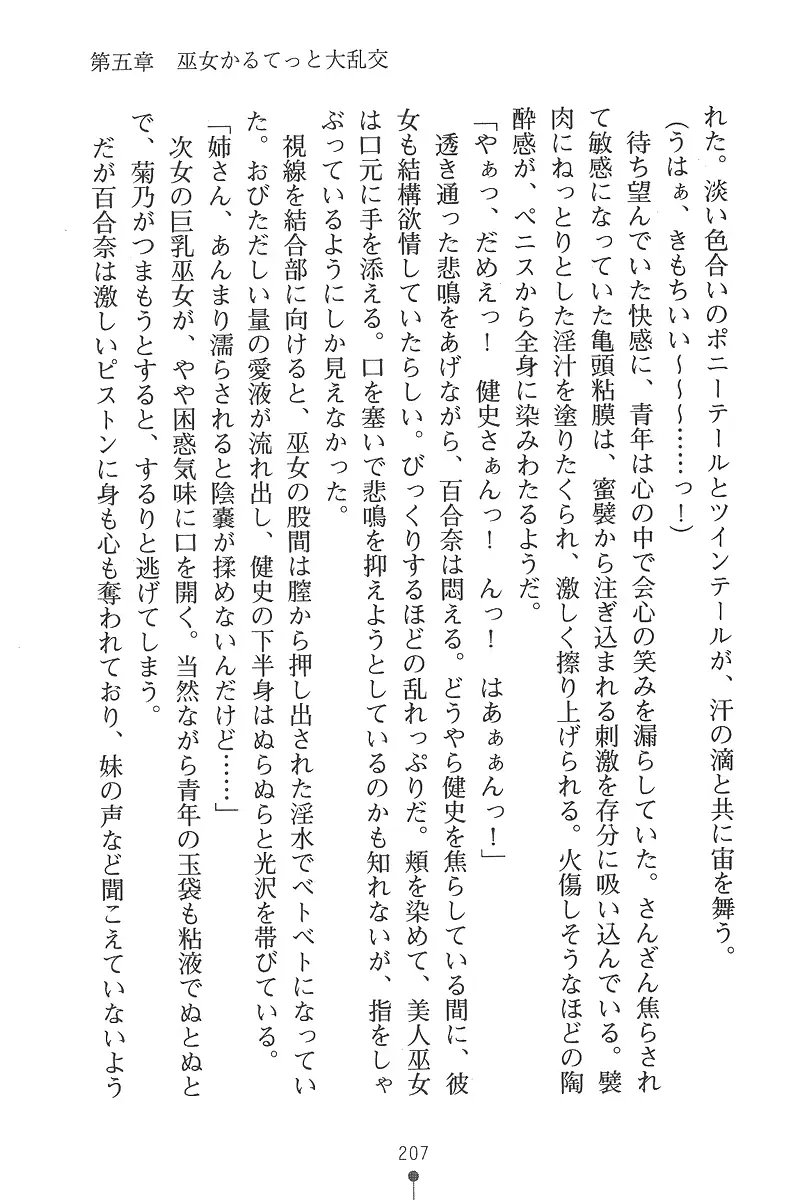 第五章　巫女かるてっと大乱交
れた。淡い色合いのポニーテールとツインテールが、汗の滴と共に宙を舞う。
(うはぁ、きもちいい～～～……っ！)
　待ち望んでいた快感に、青年は心の中で会心の笑みを漏らしていた。さんざん焦らされ
て敏感になっていた亀頭粘膜は、蜜襞から注ぎ込まれる刺激を存分に吸い込んでいる。襞
肉にねっとりとした淫汁を塗りたくられ、激しく擦り上げられる。火傷しそうなほどの陶
酔感が、ペニスから全身に染みわたるようだ。
「やぁっ、だめえっ！　健史さぁんっ！　んっ！　はあぁぁんっ！」
　透き通った悲鳴をあげながら、百合奈は悶える。どうやら健史を焦らしている間に、彼
女も結構欲情していたらしい。びっくりするほどの乱れっぷりだ。頬を染めて、美人巫女
は口元に手を添える。口を塞いで悲鳴を抑えようとしているのかも知れないが、指をしゃ
ぶっているようにしか見えなかった。
　視線を結合部に向けると、巫女の股間は膣から押し出された淫水でベトベトになってい
た。おびただしい量の愛液が流れ出し、健史の下半身はぬらぬらと光沢を帯びている。
「姉さん、あんまり濡らされると陰嚢が揉めないんだけど……」
　次女の巨乳巫女が、やや困惑気味に口を開く。当然ながら青年の玉袋も粘液でぬとぬと
で、菊乃がつまもうとすると、するりと逃げてしまう。
　だが百合奈は激しいピストンに身も心も奪われており、妹の声など聞こえていないよう
207